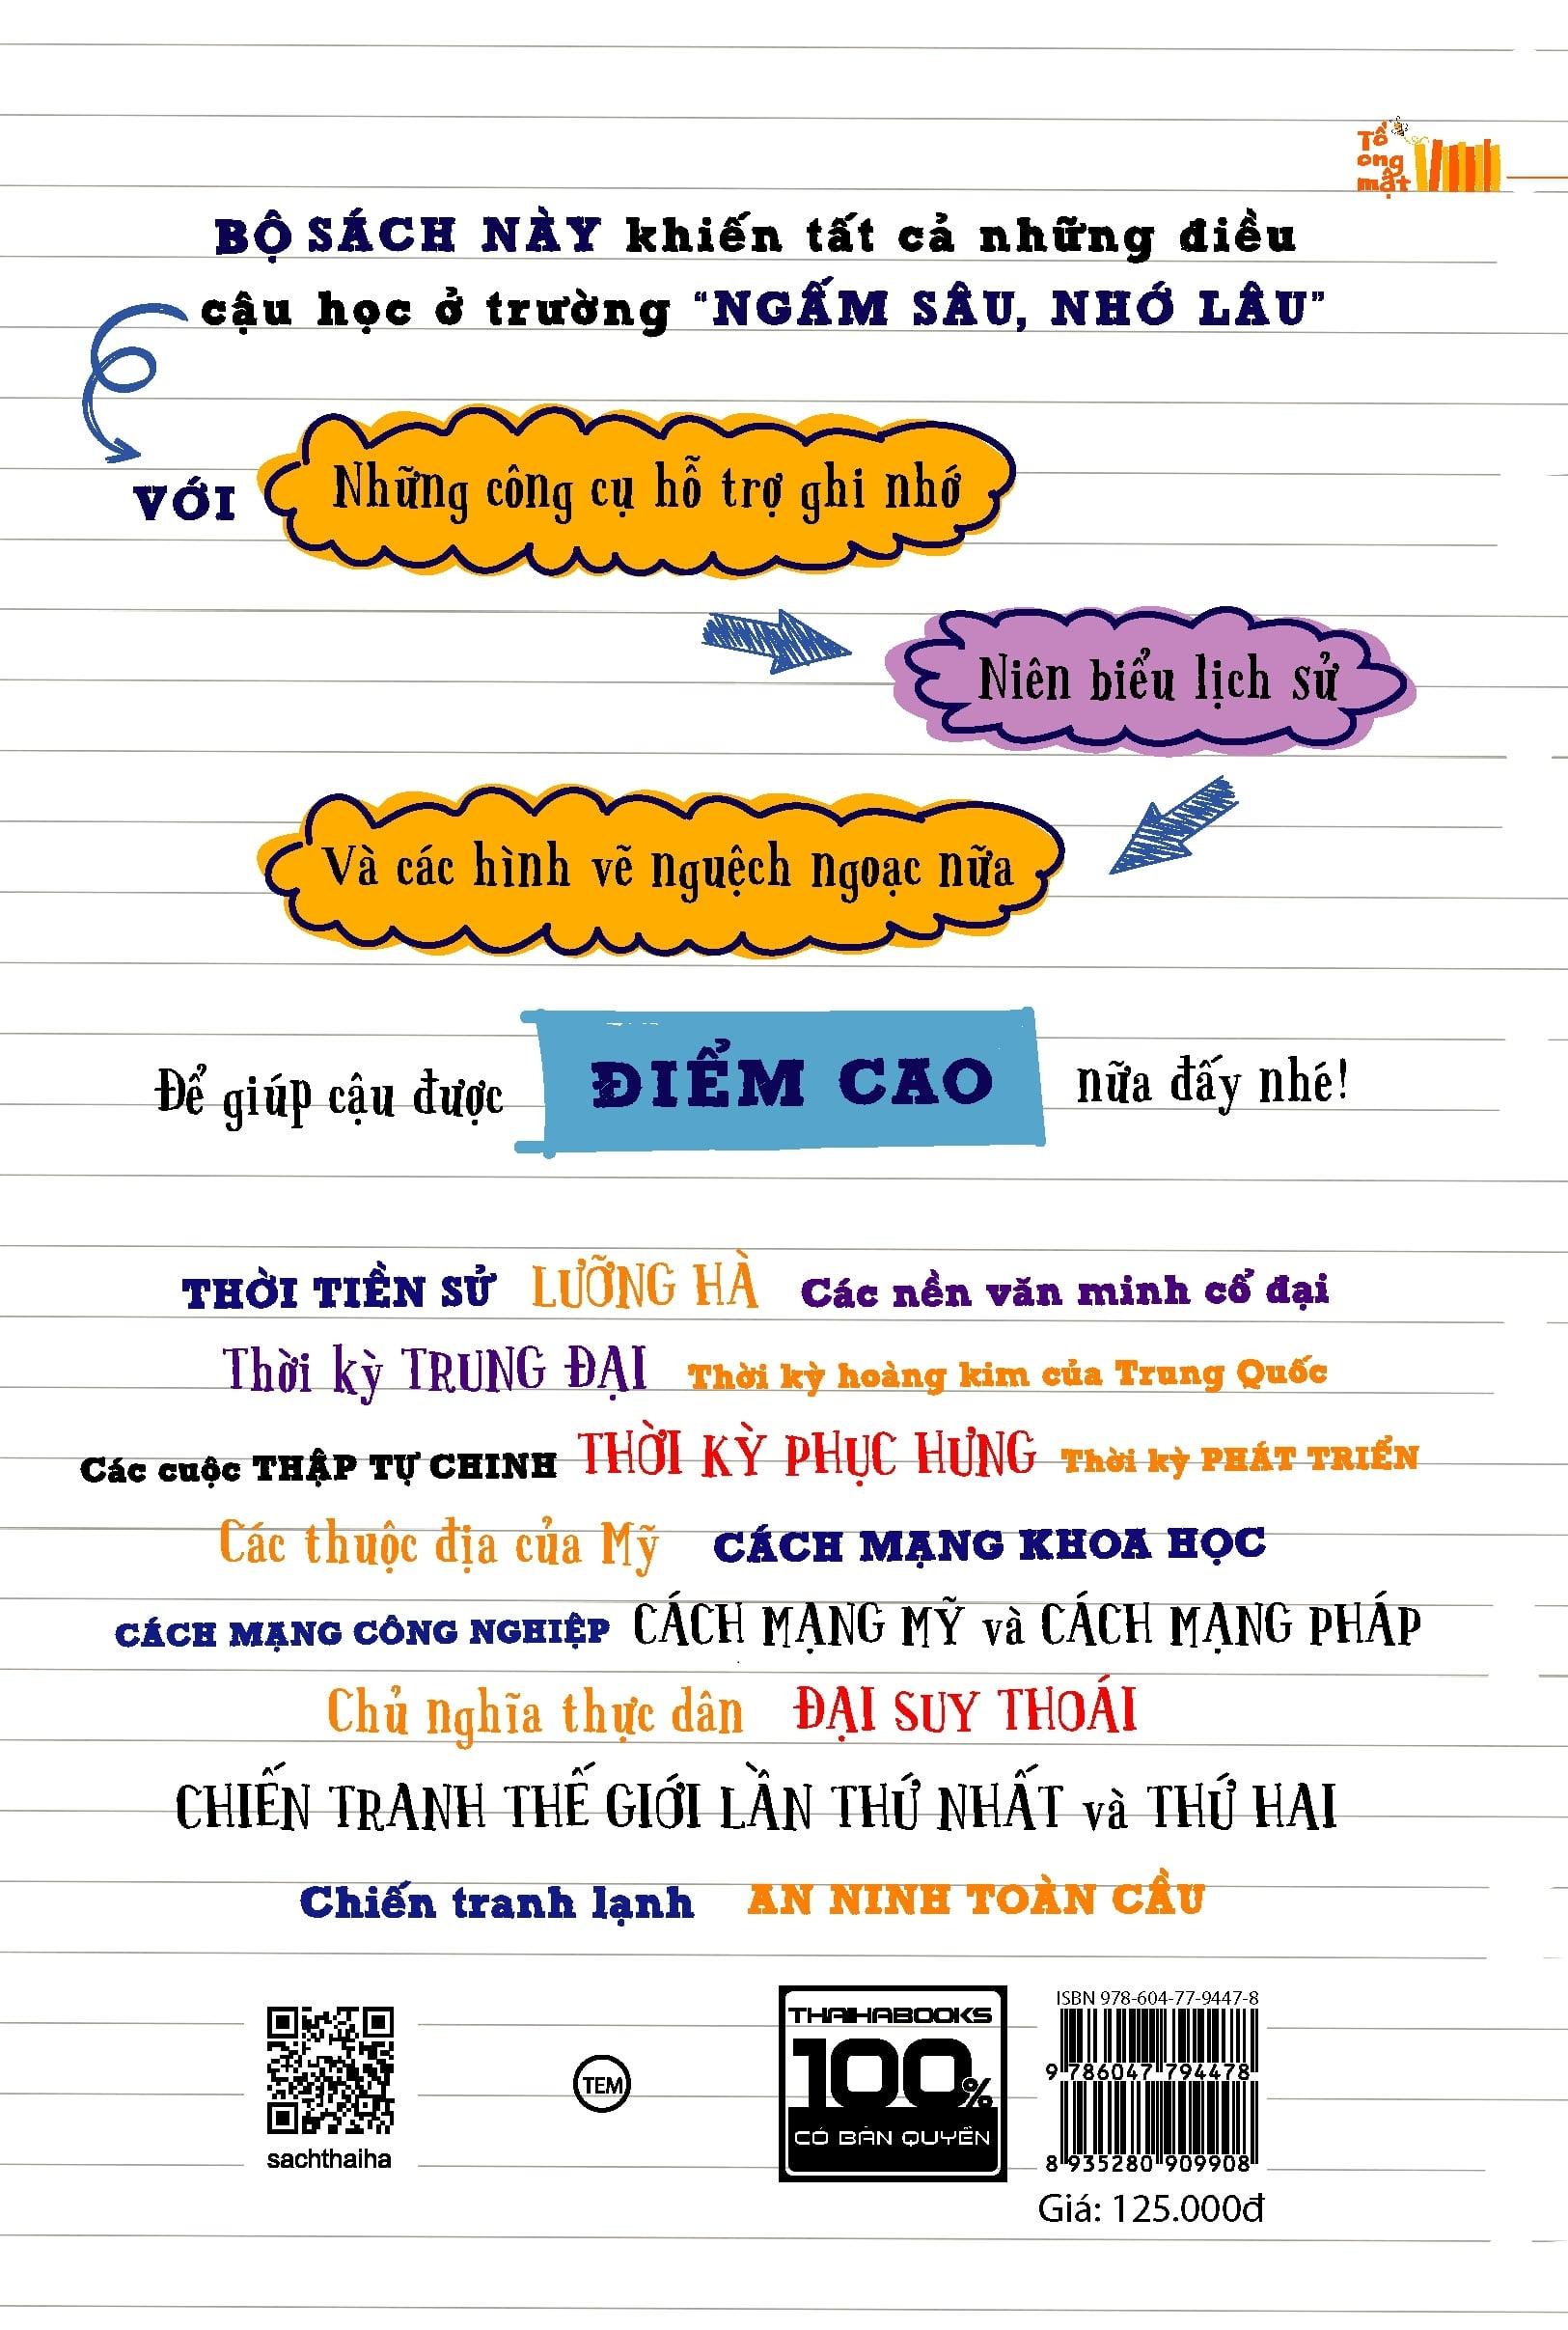 Tổ
ong
mật
BỘ SÁCH NÀY khiến tất cả những điều
cậu học ở trường “NGẤM SÂU, NHỚ LÂU”
VỚI Những công cụ hỗ trợ ghi nhớ
Niên biểu lịch sử
Và các hình vẽ nguệch ngoạc nữa
Để giúp cậu được ĐIỂM CAO nữa đấy nhé!
THỜI TIỀN SỬ LƯỠNG HÀ Các nền văn minh cổ đại
Thời kỳ TRUNG ĐẠI Thời kỳ hoàng kim của Trung Quốc
Các cuộc THẬP TỰ CHINH THỜI KỲ PHỤC HƯNG Thời kỳ PHÁT TRIỂN
Các thuộc địa của Mỹ CÁCH MẠNG KHOA HỌC
CÁCH MẠNG CÔNG NGHIỆP CÁCH MẠNG MỸ và CÁCH MẠNG PHÁP
Chủ nghĩa thực dân ĐẠI SUY THOÁI
CHIẾN TRANH THẾ GIỚI LẦN THỨ NHẤT và THỨ HAI
Chiến tranh lạnh AN NINH TOÀN CẦU
sachthaiha
TEM
THAIHABOOKS
100%
CÓ BẢN QUYỀN
ISBN 978-604-77-9447-8
9 786047 794478
8 935280 909908
Giá: 125.000đ